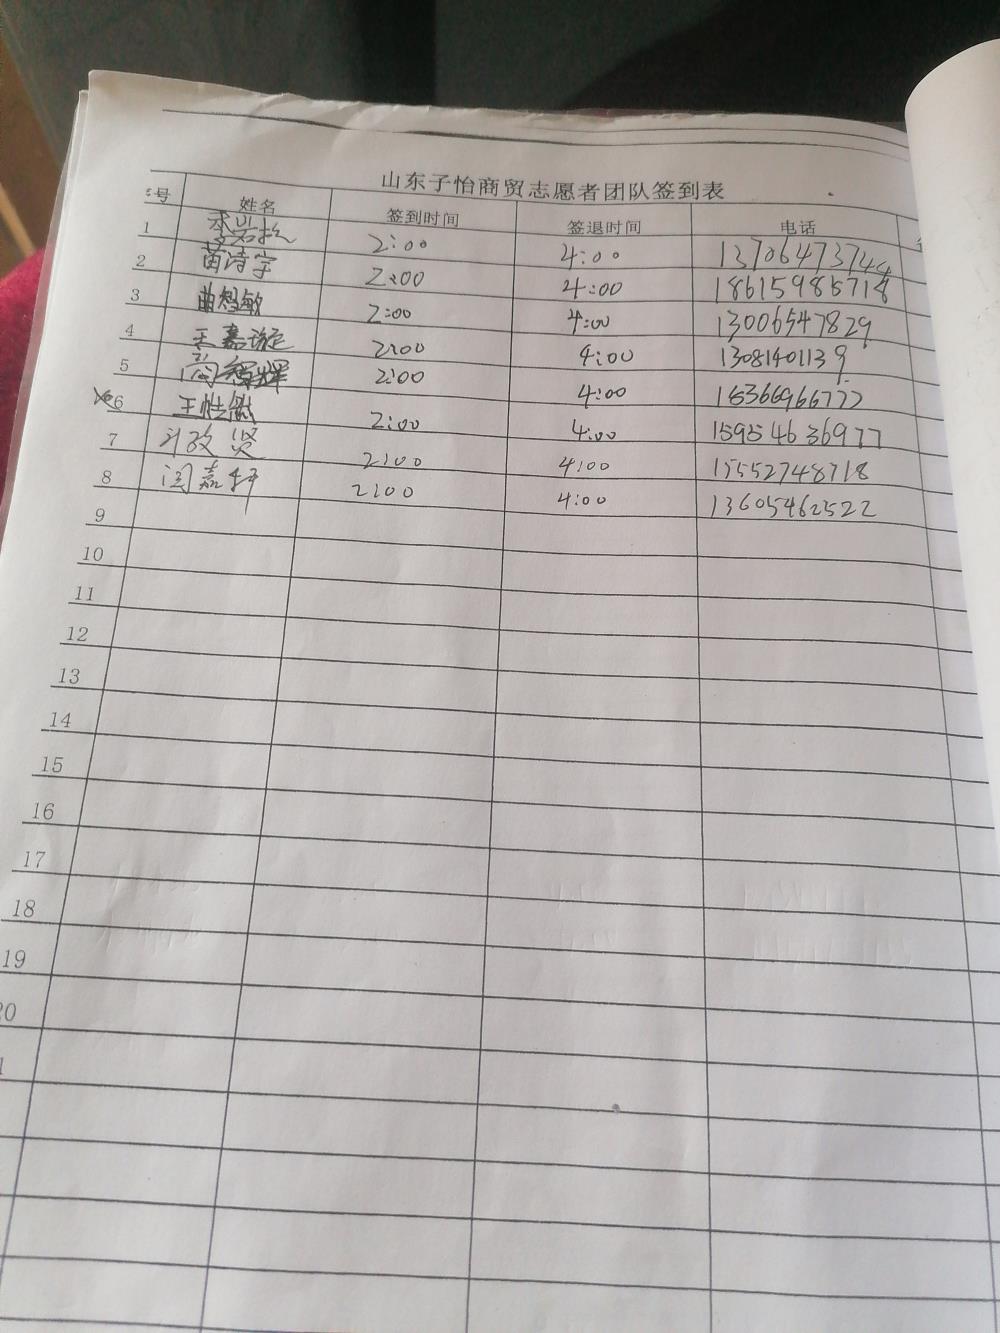 山东子怡商贸志愿者团队签到表
号 姓名 签到时间 签退时间 电话
1 李岩松 2:00 4:00 13706473744
2 苗诗宇 2:00 4:00 18615985718
3 曲智敏 2:00 4:00 13006547829
4 王嘉璇 2:00 4:00 13081401139
5 辉 2:00 4:00 15366966777
6 王皓 2:00 4:00 15954636977
7 政贤 2:00 4:00 15552748718
8 闫嘉轩 2:00 4:00 13605462522
9
10
11
12
13
14
15
16
17
18
19
20
1